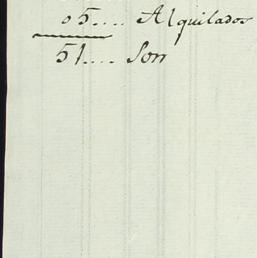 05.... Alquilados
51.... Son